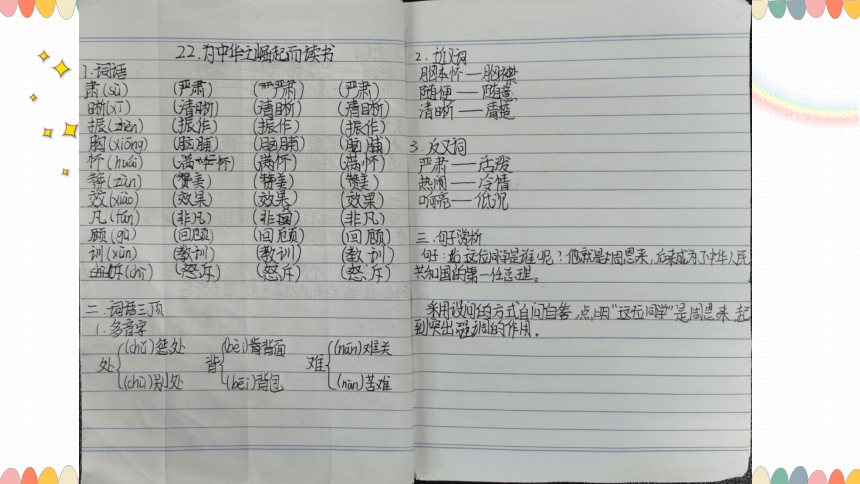 22.为中华之崛起而读书
1.词语
肃(sù) (严肃) (严肃) (严肃)
晰(xī) (清晰) (清晰) (清晰)
振(zhèn) (振作) (振作) (振作)
胸(xiōng) (胸脯) (胸脯) (胸脯)
怀(huái) (满怀) (满怀) (满怀)
赞(zàn) (赞美) (赞美) (赞美)
效(xiào) (效果) (效果) (效果)
凡(fán) (非凡) (非凡) (非凡)
顾(gù) (回顾) (回顾) (回顾)
训(xùn) (教训) (教训) (教训)
斥(chì) (怒斥) (怒斥) (怒斥)
二.词语三顶
1.多音字
处 (chǔ)惩处 背 (bèi)背面 难 (nán)难关
(chù)别处 (bēi)背包 (nàn)苦难
2.近义词
胸怀——胸襟
随便——随意
清晰——清楚
3.反义词
严肃——活泼
热闹——冷清
响亮——低沉
三.句子赏析
句子:这位同学是谁呢?他就是周恩来,后来成为了中华人民
共和国的第一任总理。
采用设问的方式自问自答,点明“这位同学”是周恩来,起
到突出强调的作用.